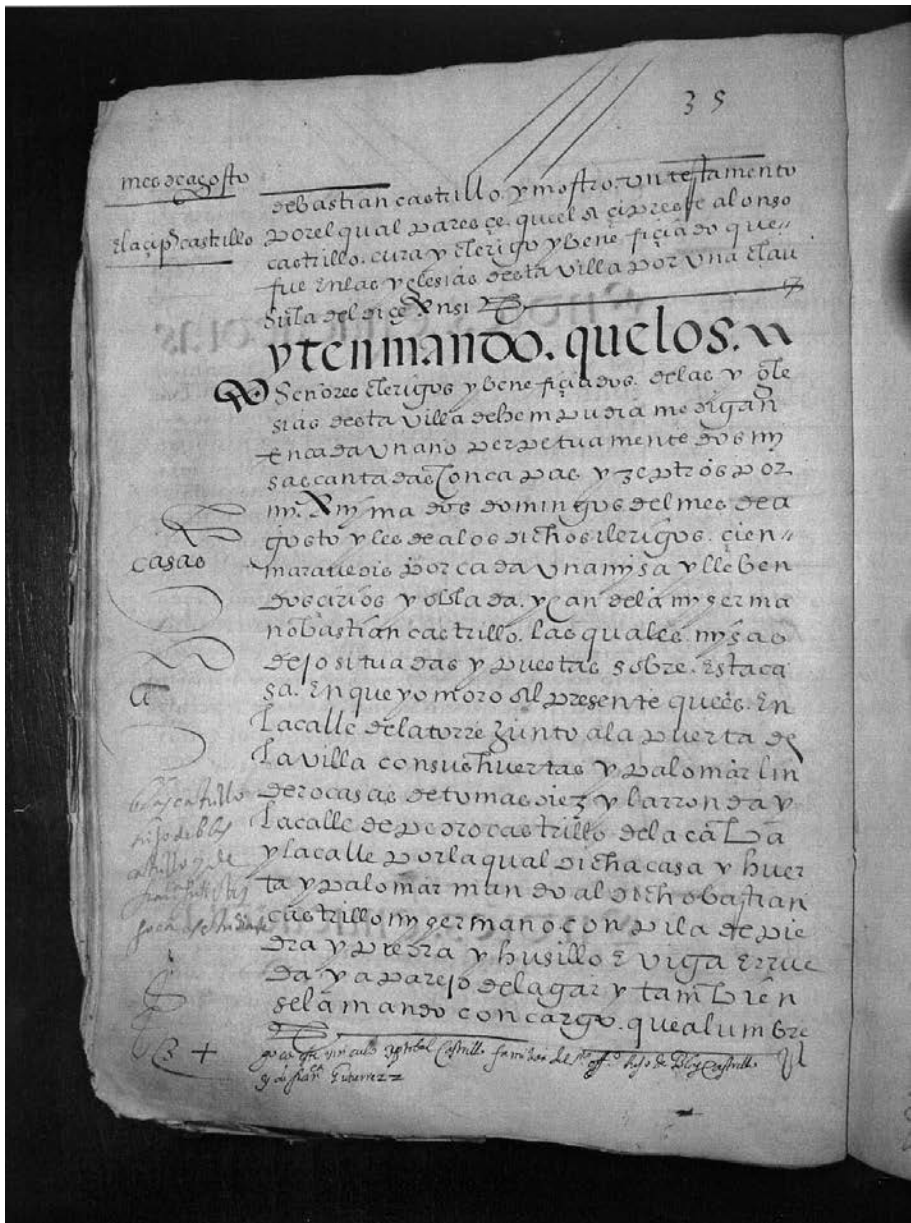 35
mes de agosto
debastian castrillo. y mostro. un testamento
el açip̃e castrillo
por el qual paresçe. quel açipreste alonso
castrillo. cura y clerigo y beneficiado que
fue en las yglesias desta villa por una clau
sula del diçe ansi
yten mando. que los.
señores clerigos y beneficiados. de las ygle
sias desta villa de hempudia me digan
en cada un ano perpetuamente dos my
sas cantadas con capas y zeptros por
my. anyma dos domingos del mes de a
gosto y les de a los dichos clerigos. çien
casas
maravedis por cada una mysa y lleben
dos çirios y oblada. y candela my germa
no bastian castrillo. las quales. mysas
dejo situadas y puestas sobre. esta ca
sa. en que yo moro al presente ques. en
la calle de la torre junto a la puerta de
la villa con sus huertas y palomar lin
dero casas de tomas diez y la rronda y
blas castrillo
hijo de blas
castrillo y de
la calle de pedro castrillo de la
y la calle por la qual dicha casa y huer
ta y palomar mando al dicho bastian
castrillo my germano con pila de pie
dra y piedra y husillo e viga e rrue
da y aparejo de lagar y tambien
se la mando con cargo. que alumbre
goça este vinculo xptobal castrillo familiar del sto offo hijo de Blas castrillo
y de franca Gutierrez